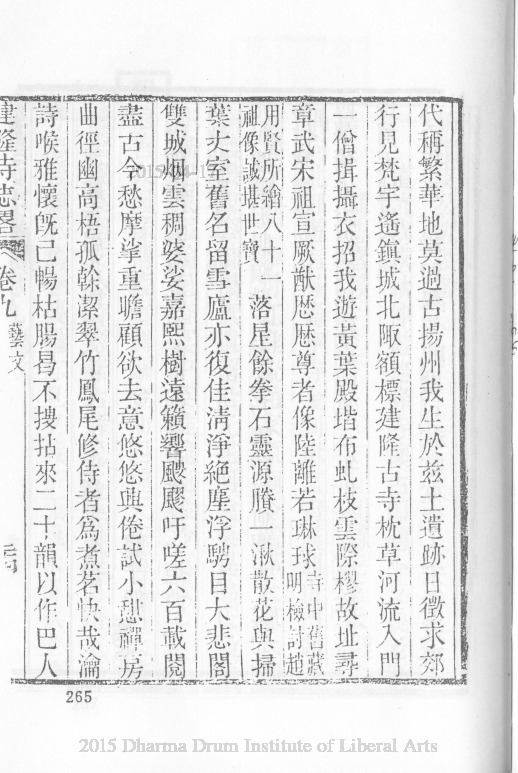 代稱繁華地莫過古揚州我生於兹土遺跡日徵求郊
行見梵宇遙鎮城北陬額標建隆古寺枕草河流入門
一僧揖攝衣招我遊黃葉殿堦布虬枝雲際樛故址尋
章武宋祖宣厥猷歴歴尊者像陸離若琳球寺中舊藏明檢討趙
用賢所繪八十一祖像誠堪世寶落星餘拳石靈源賸一湫散花與掃
葉丈室舊名留雪廬亦復佳清淨絶塵浮騁目大悲閣
雙城烟雲稠婆娑嘉熙樹遠籟響颼飀吁嗟六百載閱
盡古今愁摩挲重瞻顧欲去意悠悠與倦試小憇禪房
曲徑幽高梧孤榦潔翠竹鳳尾修侍者爲煮茗快哉瀹
詩喉雅懷旣已暢枯腸曷不搜拈來二十韻以作巴人
建隆寺志畧 卷九 藝文
265
2015 Dharma Drum Institute of Liberal Arts